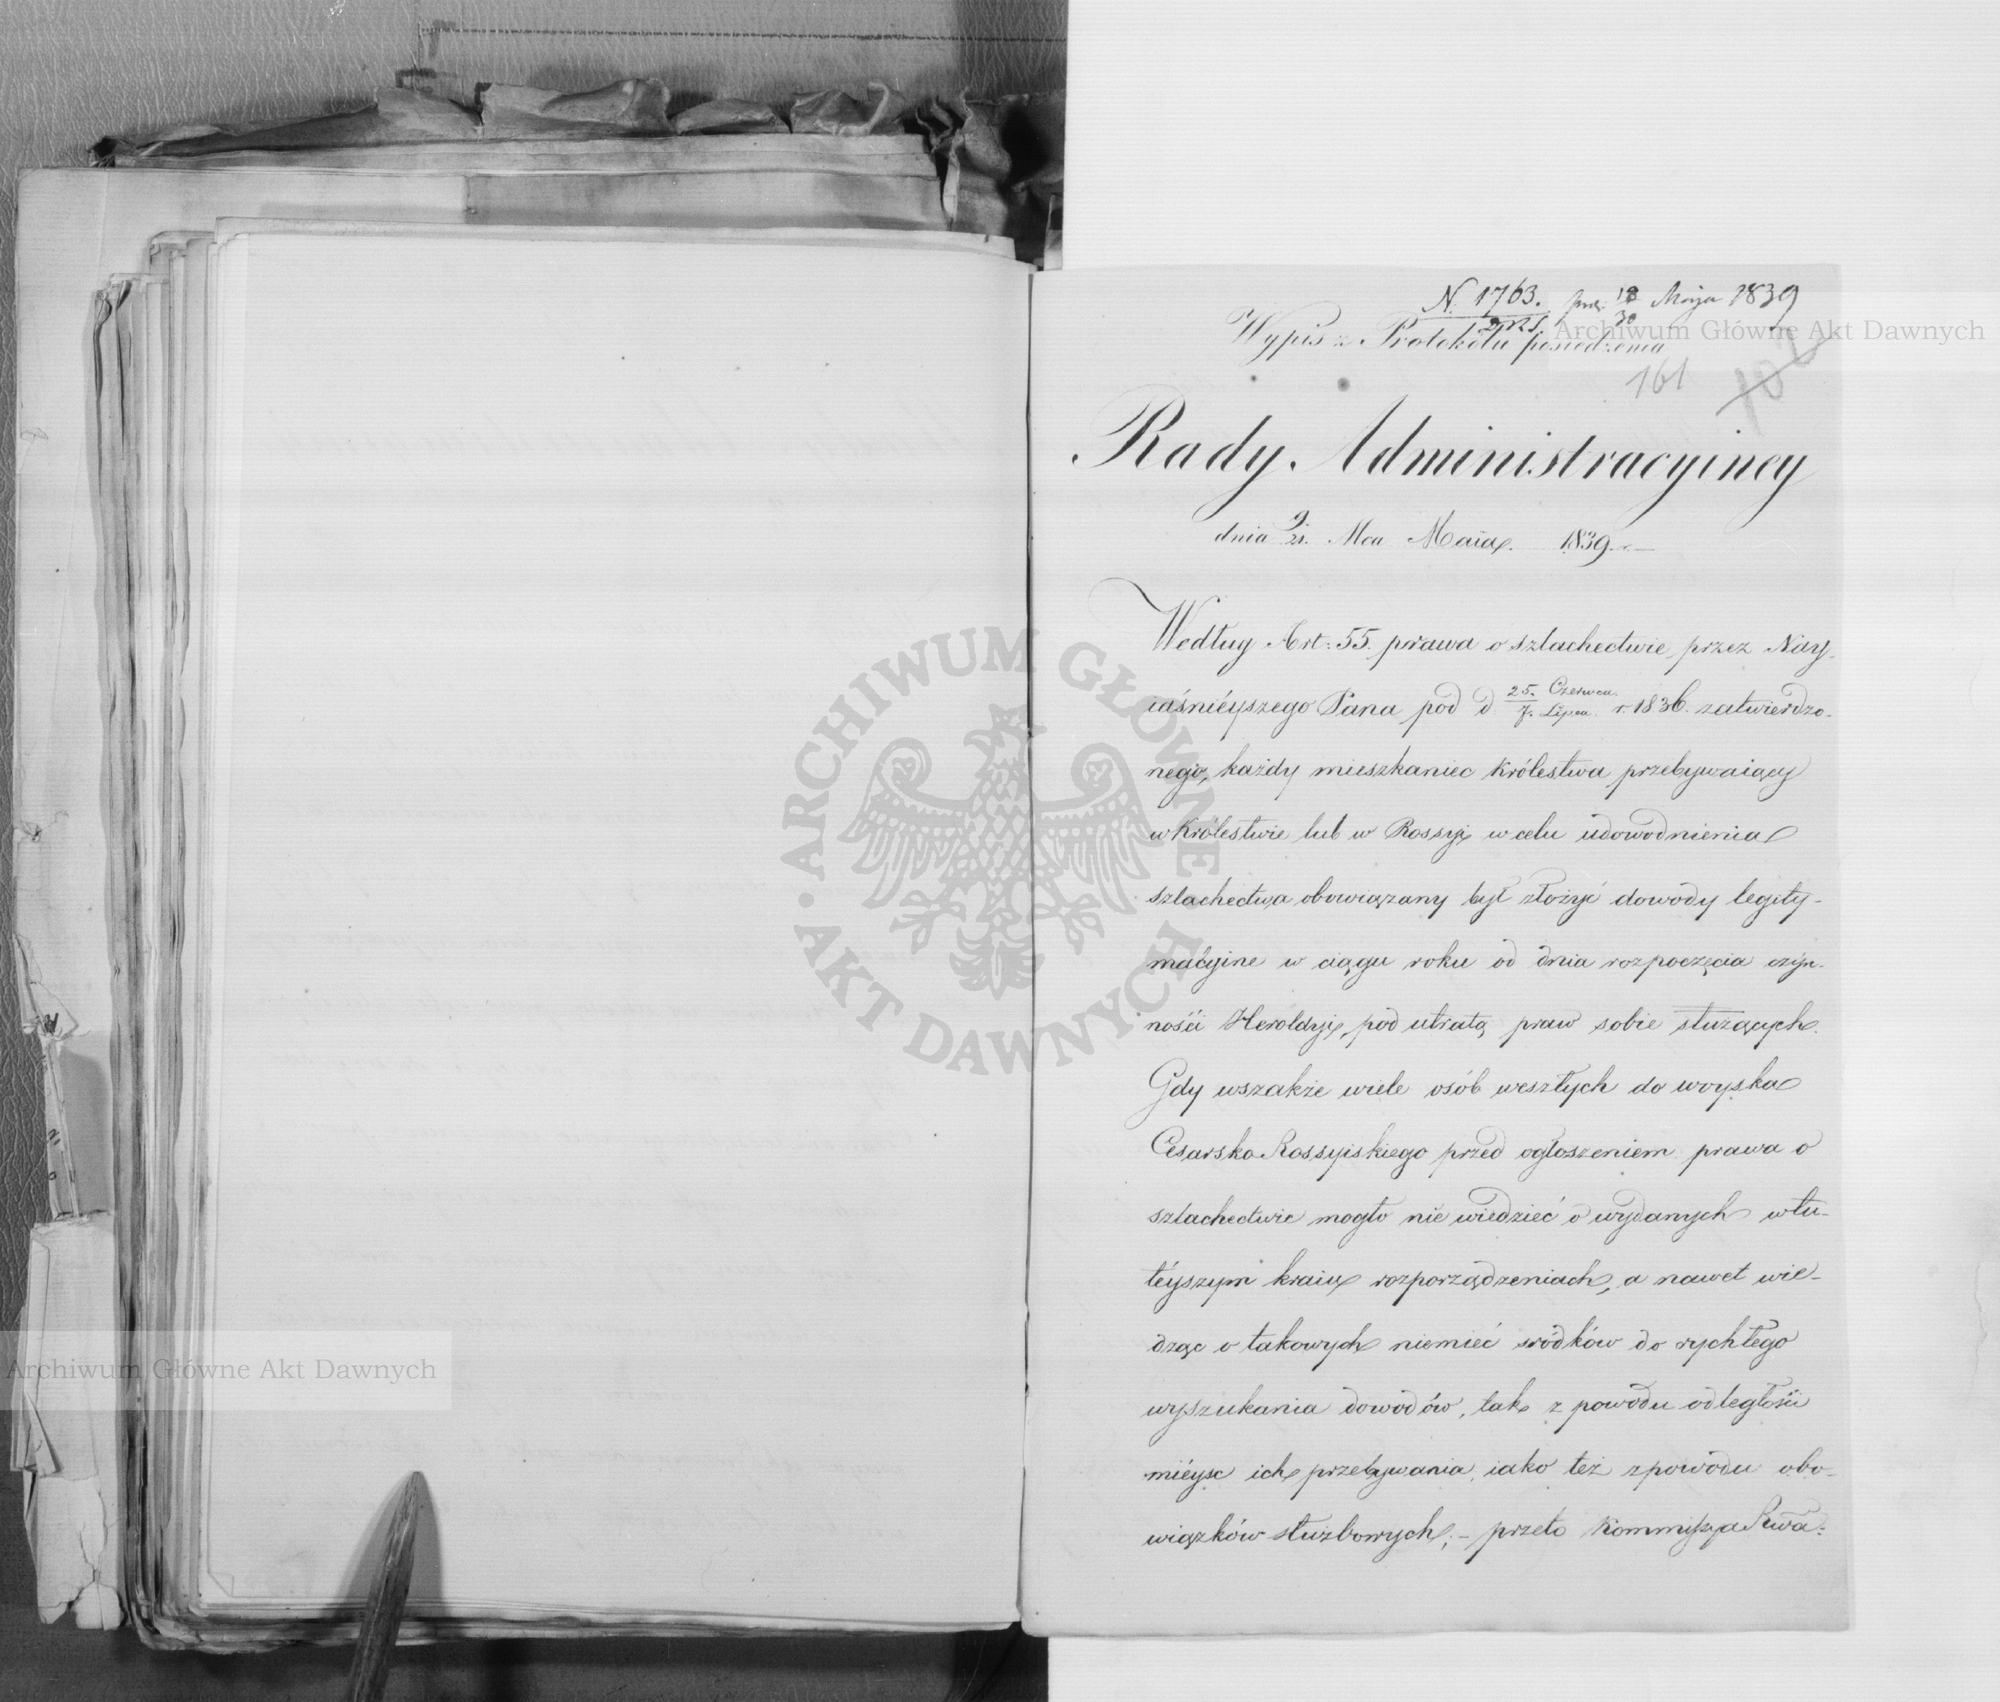 N. 1763. 18/30 Maja 1839
Wypis z Protokółu posiedzenia
161
Rady Administracyiney
dnia 9/21. Mca Maia 1839.
Według Art: 55. prawa o szlachectwie przez Nay-
iaśnieyszego Pana pod d 25. Czerwca/7. Lipca r. 1836. zatwierdzo-
nego, każdy mieszkaniec Królestwa przebywaiący
w Królestwie lub w Rossyi w celu udowodnienia
szlachectwa obowiązany był złożyć dowody legity-
macyine w ciągu roku od dnia rozpoczęcia czyn-
ności Heroldyi, pod utratą praw sobie służących.
Gdy wszakże wiele osób weszłych do woyska
Cesarsko Rossyiskiego przed ogłoszeniem prawa o
szlachectwie mogło nie wiedzieć o wydanych w tu-
téyszym kraiu rozporządzeniach, a nawet wie-
dząc o takowych niemieć sródków do rychłego
wyszukania dowodów, tak z powodu odległości
mieysc ich przebywania, iako też z powodu obo-
wiązków służbowych; - przeto Kommissya Rzą-
Archiwum Główne Akt Dawnych
Archiwum Główne Akt Dawnych
ARCHIWUM GŁÓWNE AKT DAWNYCH